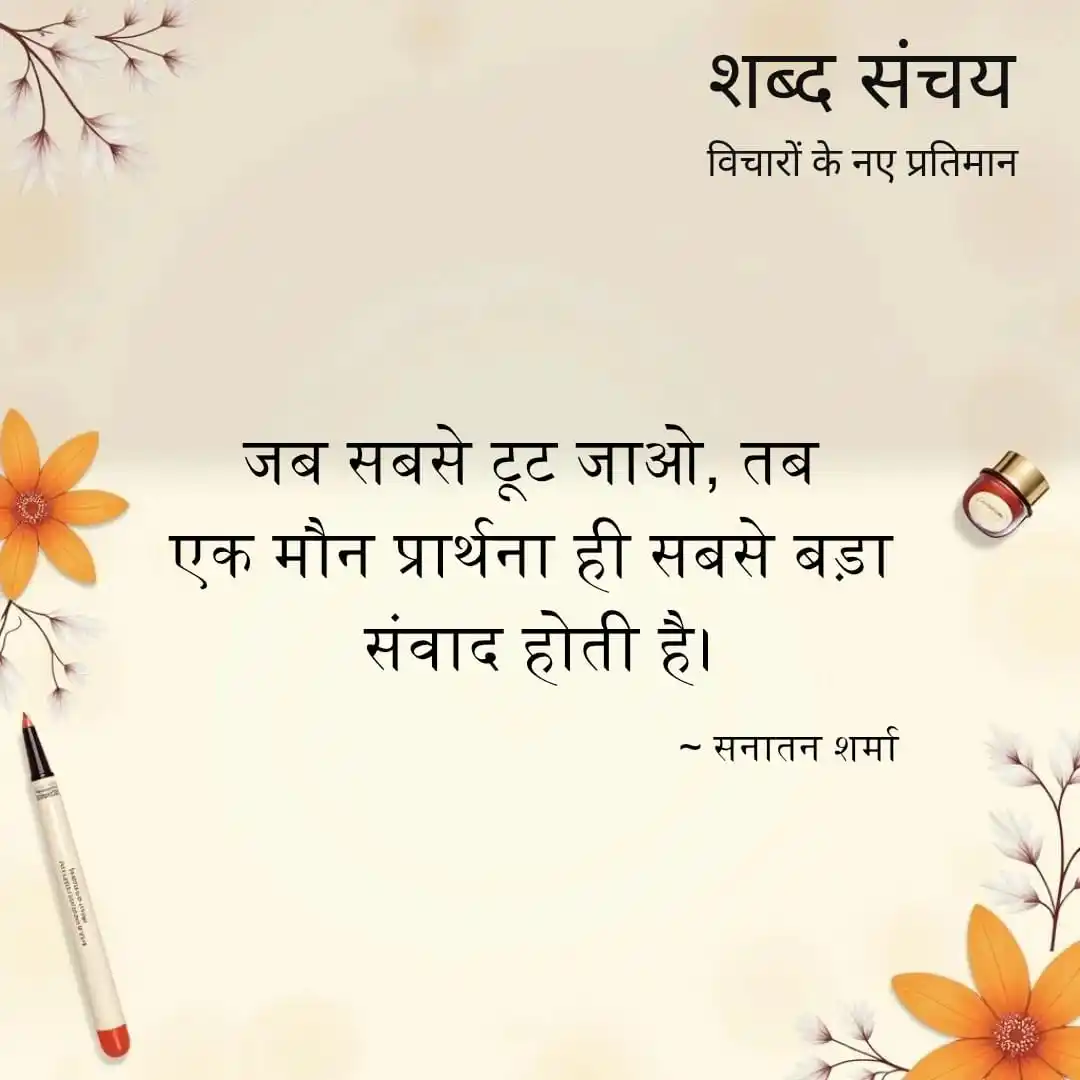 शब्द संचय
विचारों के नए प्रतिमान
जब सबसे टूट जाओ, तब
एक मौन प्रार्थना ही सबसे बड़ा
संवाद होती है।
~ सनातन शर्मा